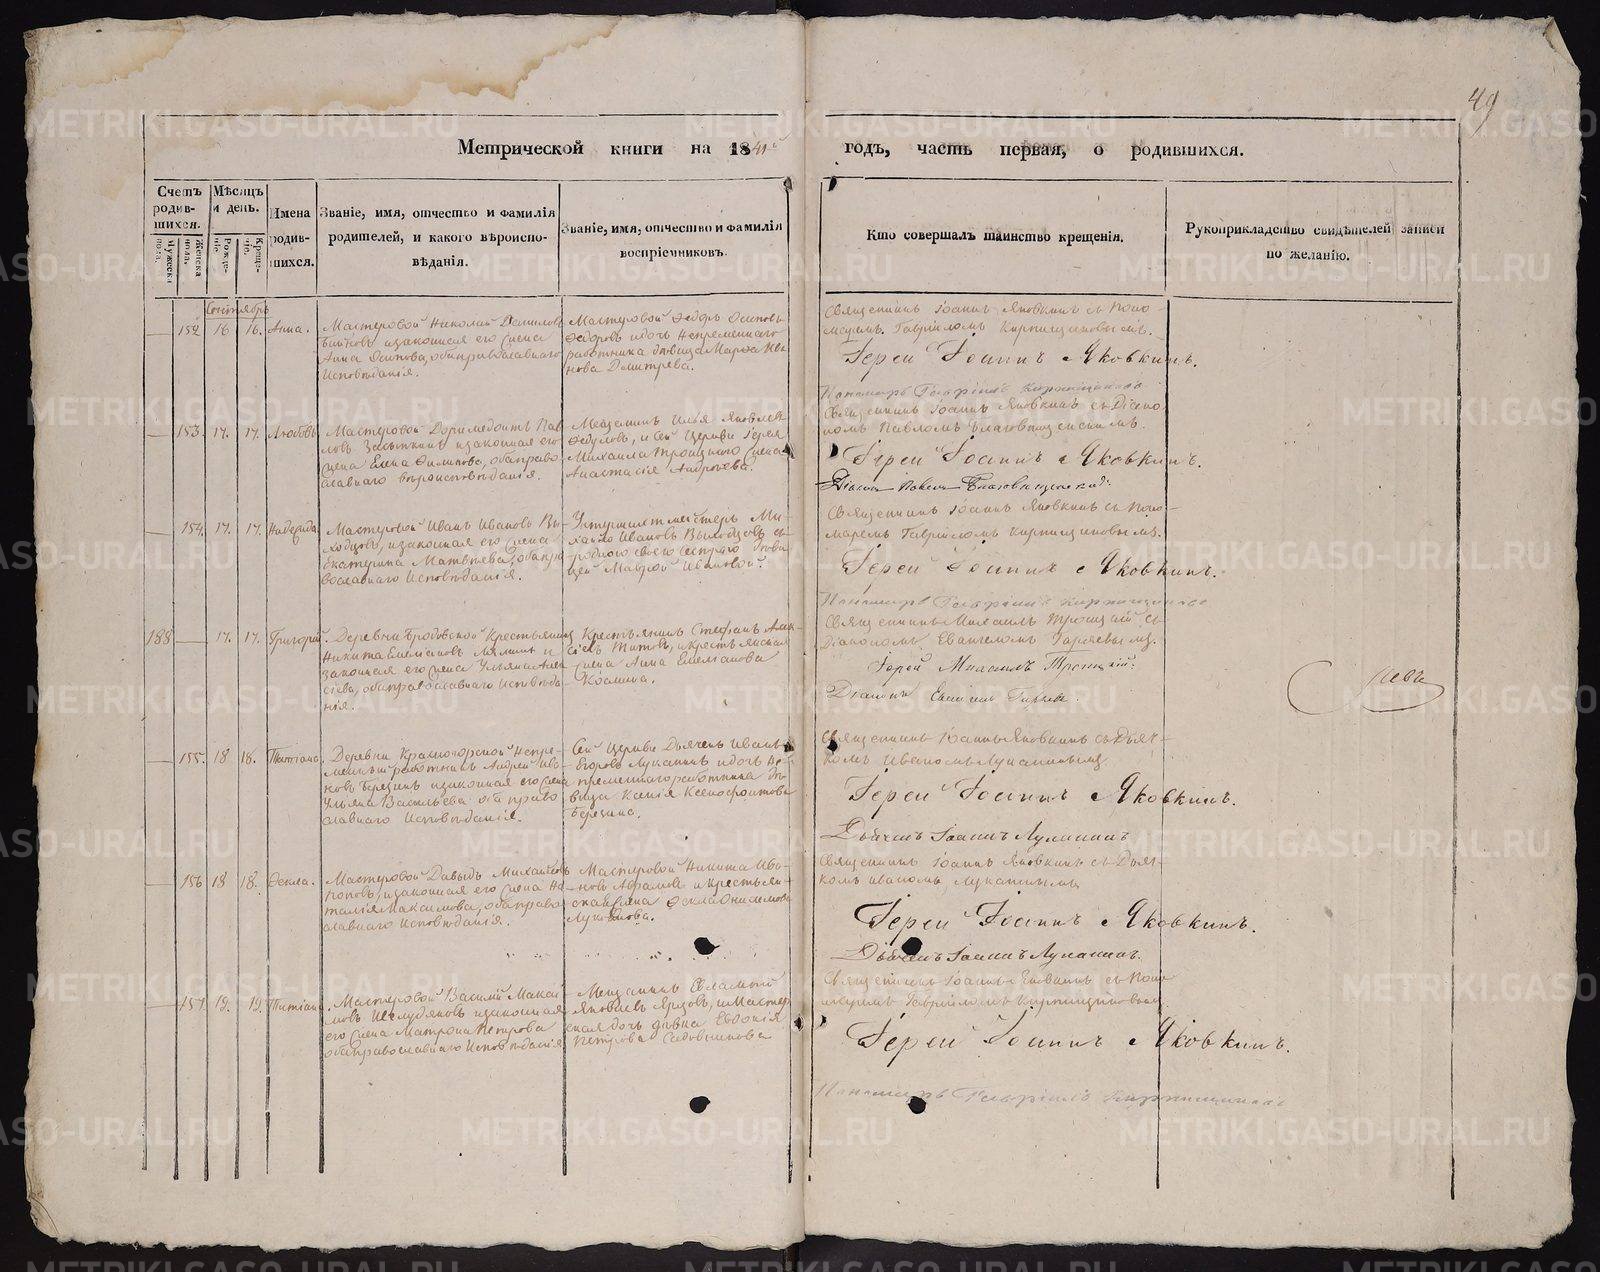 49
Метрической книги на 1841й годъ, часть первая, о родившихся.
Счетъ родив-шихся.
Мужеска пола.
Женска пола.
Мѣсяцъ и день.
Рожде-нія.
Креще-нія.
Имена родив-шихся.
Званіе, имя, отчество и фамилія
родителей, и какого вѣроиспо-
вѣданія.
Званіе, имя, отчество и фамилія
воспріемниковъ.
Кто совершалъ таинство крещенія.
Рукоприкладство свидѣтелей записи
по желанію.
Сентябрь
152 16 16. Анна.
Мастеровой Николай Данилов
изаконная его жена
Анна Осипова, оба православнаго
Исповѣданія.
Мастеровой Ѳедоръ Осиповъ
Ѳедоровъ и дочь Непременнаго
работника девица Марѳа Ива-
нова Дмитрева.
Священникъ Іоаннъ Яковкинъ съ Поно-
маремъ Гавріиломъ Кирпищиковымъ.
Іерей Іоаннъ Яковкинъ.
Пономарь Гавріилъ Кирпищиковъ
153. 17. 17. Любовь
Мастеровой Доримедонтъ Пав
ловъ изаконная его
жена Елена Филипова, оба право
славнаго вѣроисповѣданія.
Мещанинъ Илья Яковлев
Ѳедуловъ, и Сей Церкви Іерея
Михаила Троицкаго жена
Анастасія Андреева.
Священникъ Іоаннъ Яковкинъ съ Діако-
номъ Павломъ Благовещенскимъ.
Іерей Іоаннъ Яковкинъ.
Діаконъ Павелъ Благовещенскій
154. 17. 17. Надежда
Мастеровой Иванъ Ивановъ Вы-
ходцовъ, изаконная его жена
Екатерина Матвѣева, оба пра
вославнаго Исповѣданія.
Унтершихтмейстеръ Ми-
хайло Ивановъ Выходцовъ съ
родною своею сестрою Дѣви
цей Маврой Ивановой.
Священникъ Іоаннъ Яковкинъ съ Поно-
маремъ Гавріиломъ Кирпищиковымъ.
Іерей Іоаннъ Яковкинъ.
Пономарь Гавріилъ Кирпищиковъ
188 17. 17. Григорій.
Деревни Бродовской Крестьянинъ
Никита Емельяновъ и
законная его жена Ульяна Алек
сѣева, оба православнаго Исповѣда-
нія.
Крестьянинъ Стефанъ Алек-
сѣевъ Титовъ, и крестьянская
жена Анна Емельянова
Козмина.
Священникъ Михаилъ Троицкій съ
Діакономъ Евангеломъ Гаряевымъ.
Іерей Михаилъ Троицкій.
Діаконъ Евангелъ Гаряевъ.
155. 18 18. Татіана.
Деревни Красногорской Непре-
менный работникъ Андрей Ива-
новъ Березинъ изаконная его жена
Ульяна Васильева оба право
славнаго Исповѣданія.
Сей Церкви Дьячекъ Иванъ
Егоровъ Луканинъ и дочь не-
пременнаго работника Дѣ-
вица Ксенія Ксенофонтова
Березина.
Священникъ Іоаннъ Яковкинъ съ Дьяч-
комъ Иваномъ Луканинымъ
Іерей Іоаннъ Яковкинъ.
Дьячекъ Іоаннъ Луканинъ
156 18 18. Ѳекла.
Мастеровой Давыдъ Михайловъ
Поповъ, изаконная его жена На-
талія Максимова, оба право
славнаго Исповѣданія.
Мастеровой Никита Ива-
новъ Абрамовъ и крестьян-
ская жена Ѳекла Онисимова
Лукоянова.
Священникъ Іоаннъ Яковкинъ съ Дьяч-
комъ Иваномъ Луканинымъ
Іерей Іоаннъ Яковкинъ.
Дьячекъ Іоаннъ Луканинъ.
157 19. 19. Татіана.
Мастеровой Василій Макси
мовъ Шелудяковъ изаконная
его жена Матрона Петрова
оба православнаго Исповѣданія
Мещанинъ
Яковлевъ и Мастер
ская дочь девка Евдокія
Петрова Садовникова
Священникъ Іоаннъ Яковкинъ съ Поно
маремъ Гавріиломъ Кирпищиковымъ.
Іерей Іоаннъ Яковкинъ.
Пономарь Гавріилъ Кирпищиковъ
METRIKI.GASO-URAL.RU